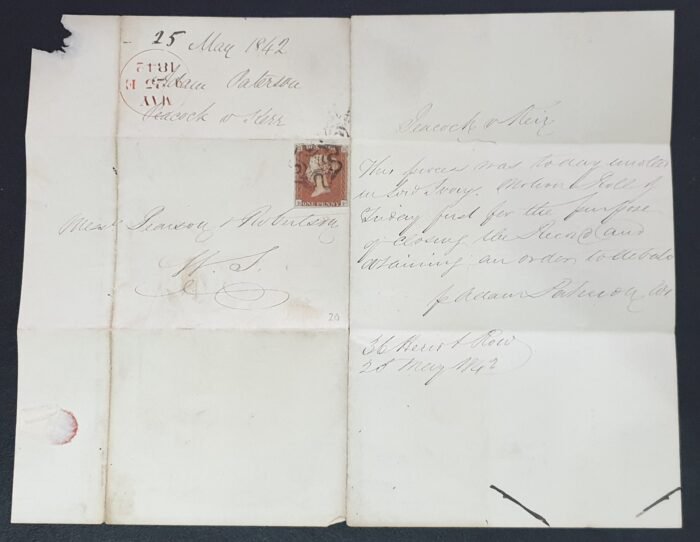 25 May 1842
Adam Paterson
Peacock v Kerr
MAY
H 25 M
1842
ONE PENNY
Messrs Pearson & Robertson
W. S.
20
Peacock v
This process was to day enrolled
in Lord Ivory's Motion Roll of
Friday just for the purpose
of closing the Record and
obtaining an order to debate
p Adam Paterson WS
36 Heriot Row
25 May 1842